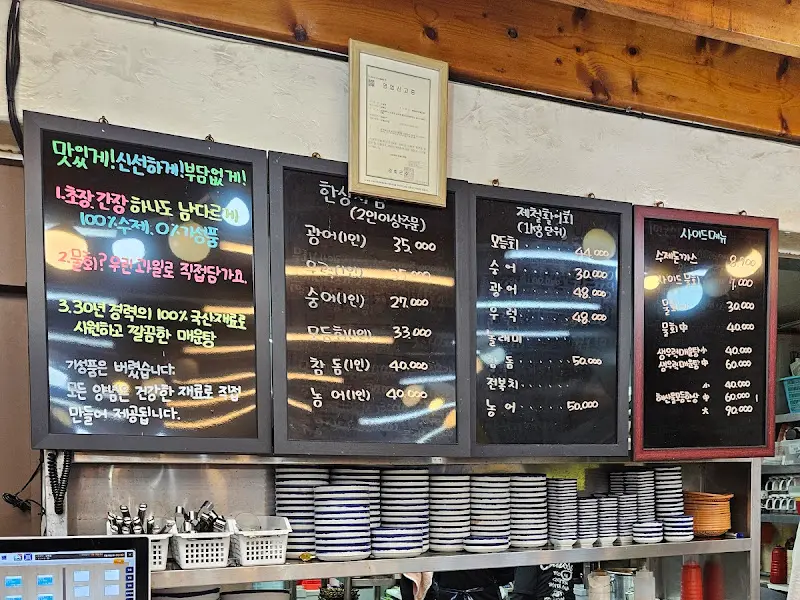 맛있게! 신선하게! 부담없게!
1. 초장, 간장 하나도 남다르게
100% 수제. 0% 기성품
2. 물회? 우린 과일로 직접담가요.
3. 30년 경력의 100% 국산재료로
시원하고 깔끔한 매운탕
기성품은 버렸습니다.
모든 양념은 건강한 재료로 직접
만들어 제공됩니다.
영업신고증
한상차림
(2인이상주문)
광어(1인) 35,000
숭어(1인) 27,000
모듬회(1인) 33,000
참돔(1인) 40,000
농어(1인) 40,000
제철활어회
(1kg 단위)
모듬회 44,000
숭어 30,000
광어 48,000
우럭 48,000
놀래미
참돔 50,000
전복치
농어 50,000
사이드메뉴
수제돈까스
사이드물회
30,000
물회 中 40,000
생우럭매운탕 小 40,000
생우럭매운탕 中 60,000
小 40,000
中 60,000
大 90,000